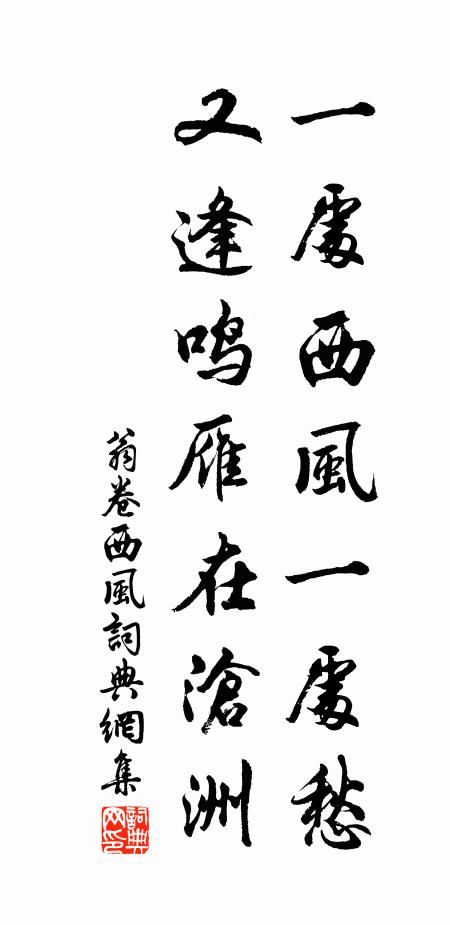 一處西風一處愁
又逢鳴雁在滄洲
翁卷西風詞典網集
詞典网印